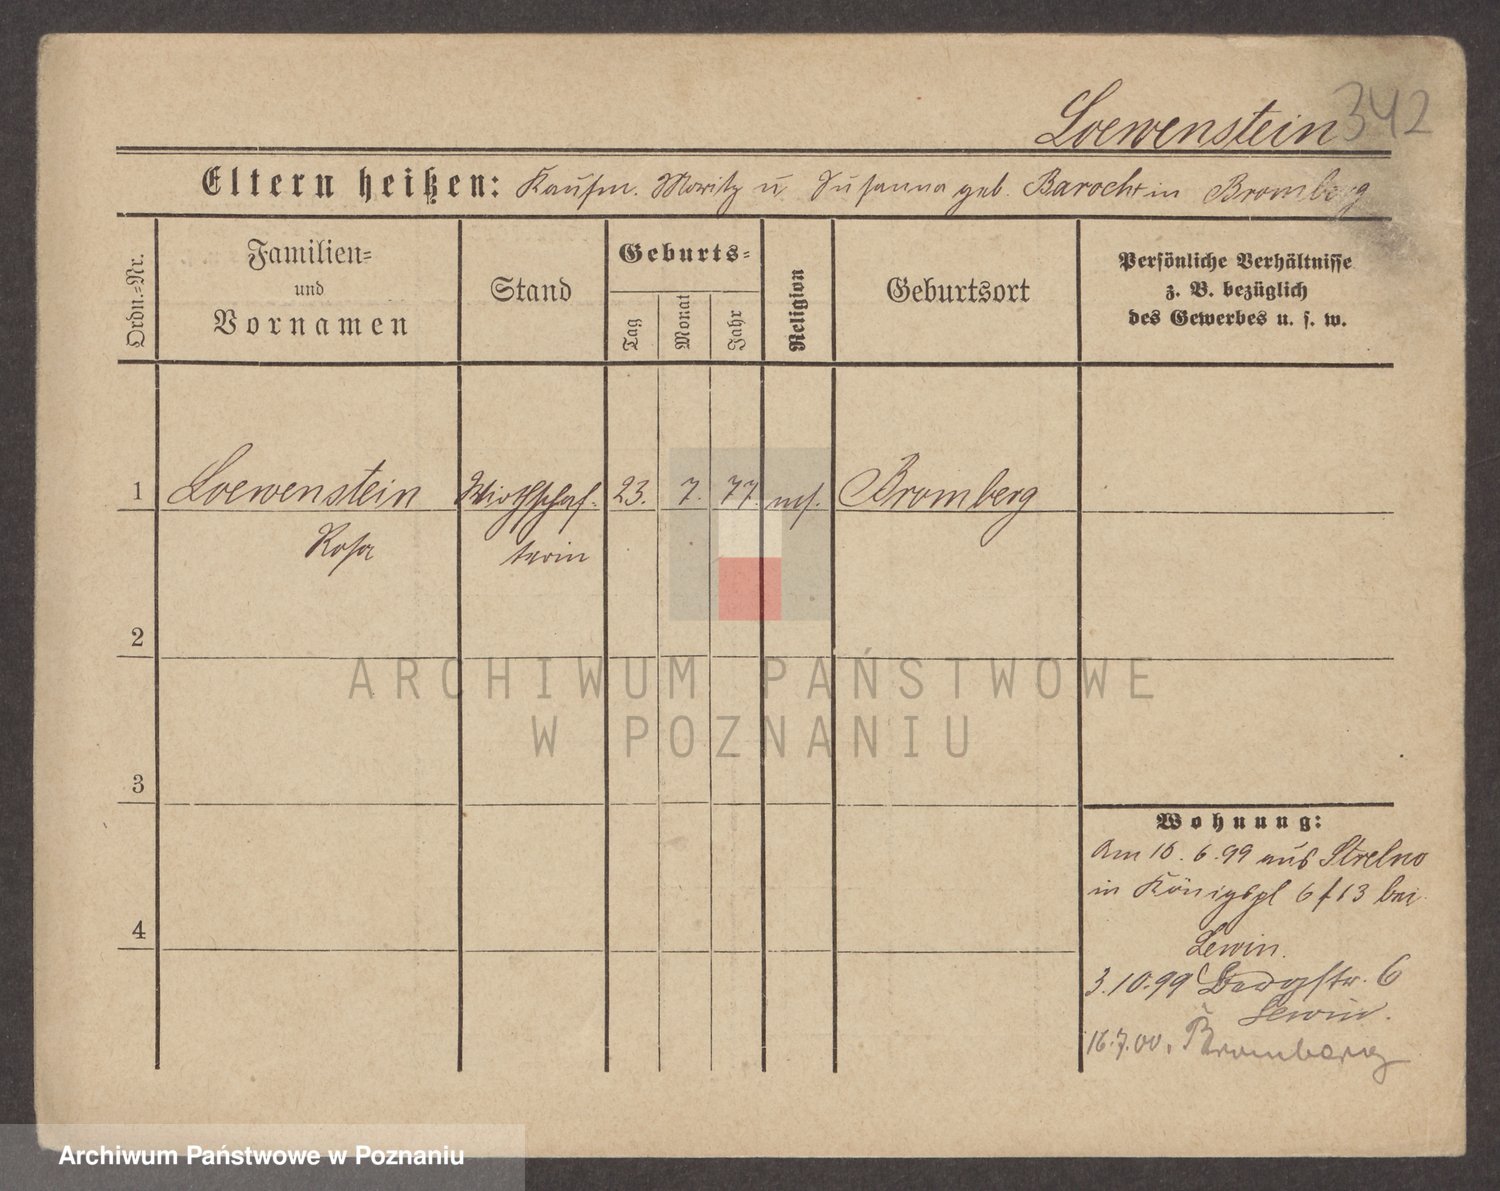 Loewenstein 342
Eltern heißen: Kaufm. Moritz u Susanna geb. Baroch in Bromberg
Ordn.=Nr.
Familien=
und
Vornamen
Stand
Geburts=
Tag
Monat
Jahr
Religion
Geburtsort
Persönliche Verhältnisse
z. B. bezüglich
des Gewerbes u. s. w.
1 Loewenstein Wirthschaf- 23. 7. 77. mos. Bromberg
Rosa terin
2
ARCHIWUM PAŃSTWOWE
W POZNANIU
3
Wohnung:
Am 16.6.99 aus Strelno
in Königspl 6 f 13 bei
Lewin.
4
3.10.99 Bergstr. 6
Lewin.
16.7.00. Bromberg
Archiwum Państwowe w Poznaniu